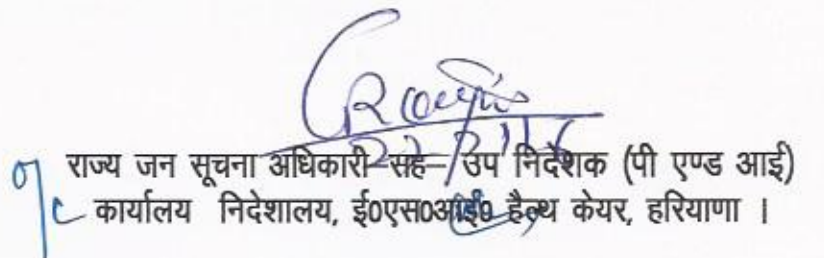 राज्य जन सूचना अधिकारी-सह-उप निदेशक (पी एण्ड आई)
कार्यालय निदेशालय, ई०एस०आई० हैल्थ केयर, हरियाणा ।